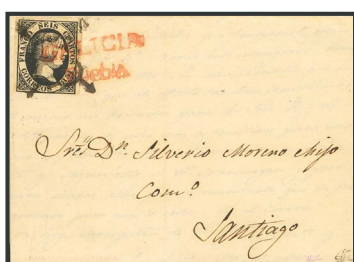 FRANCO SEIS CUARTOS
CORREOS
GALICIA
Puebla
Sres Dn. Silverio Moreno hijo
Como
Santiago